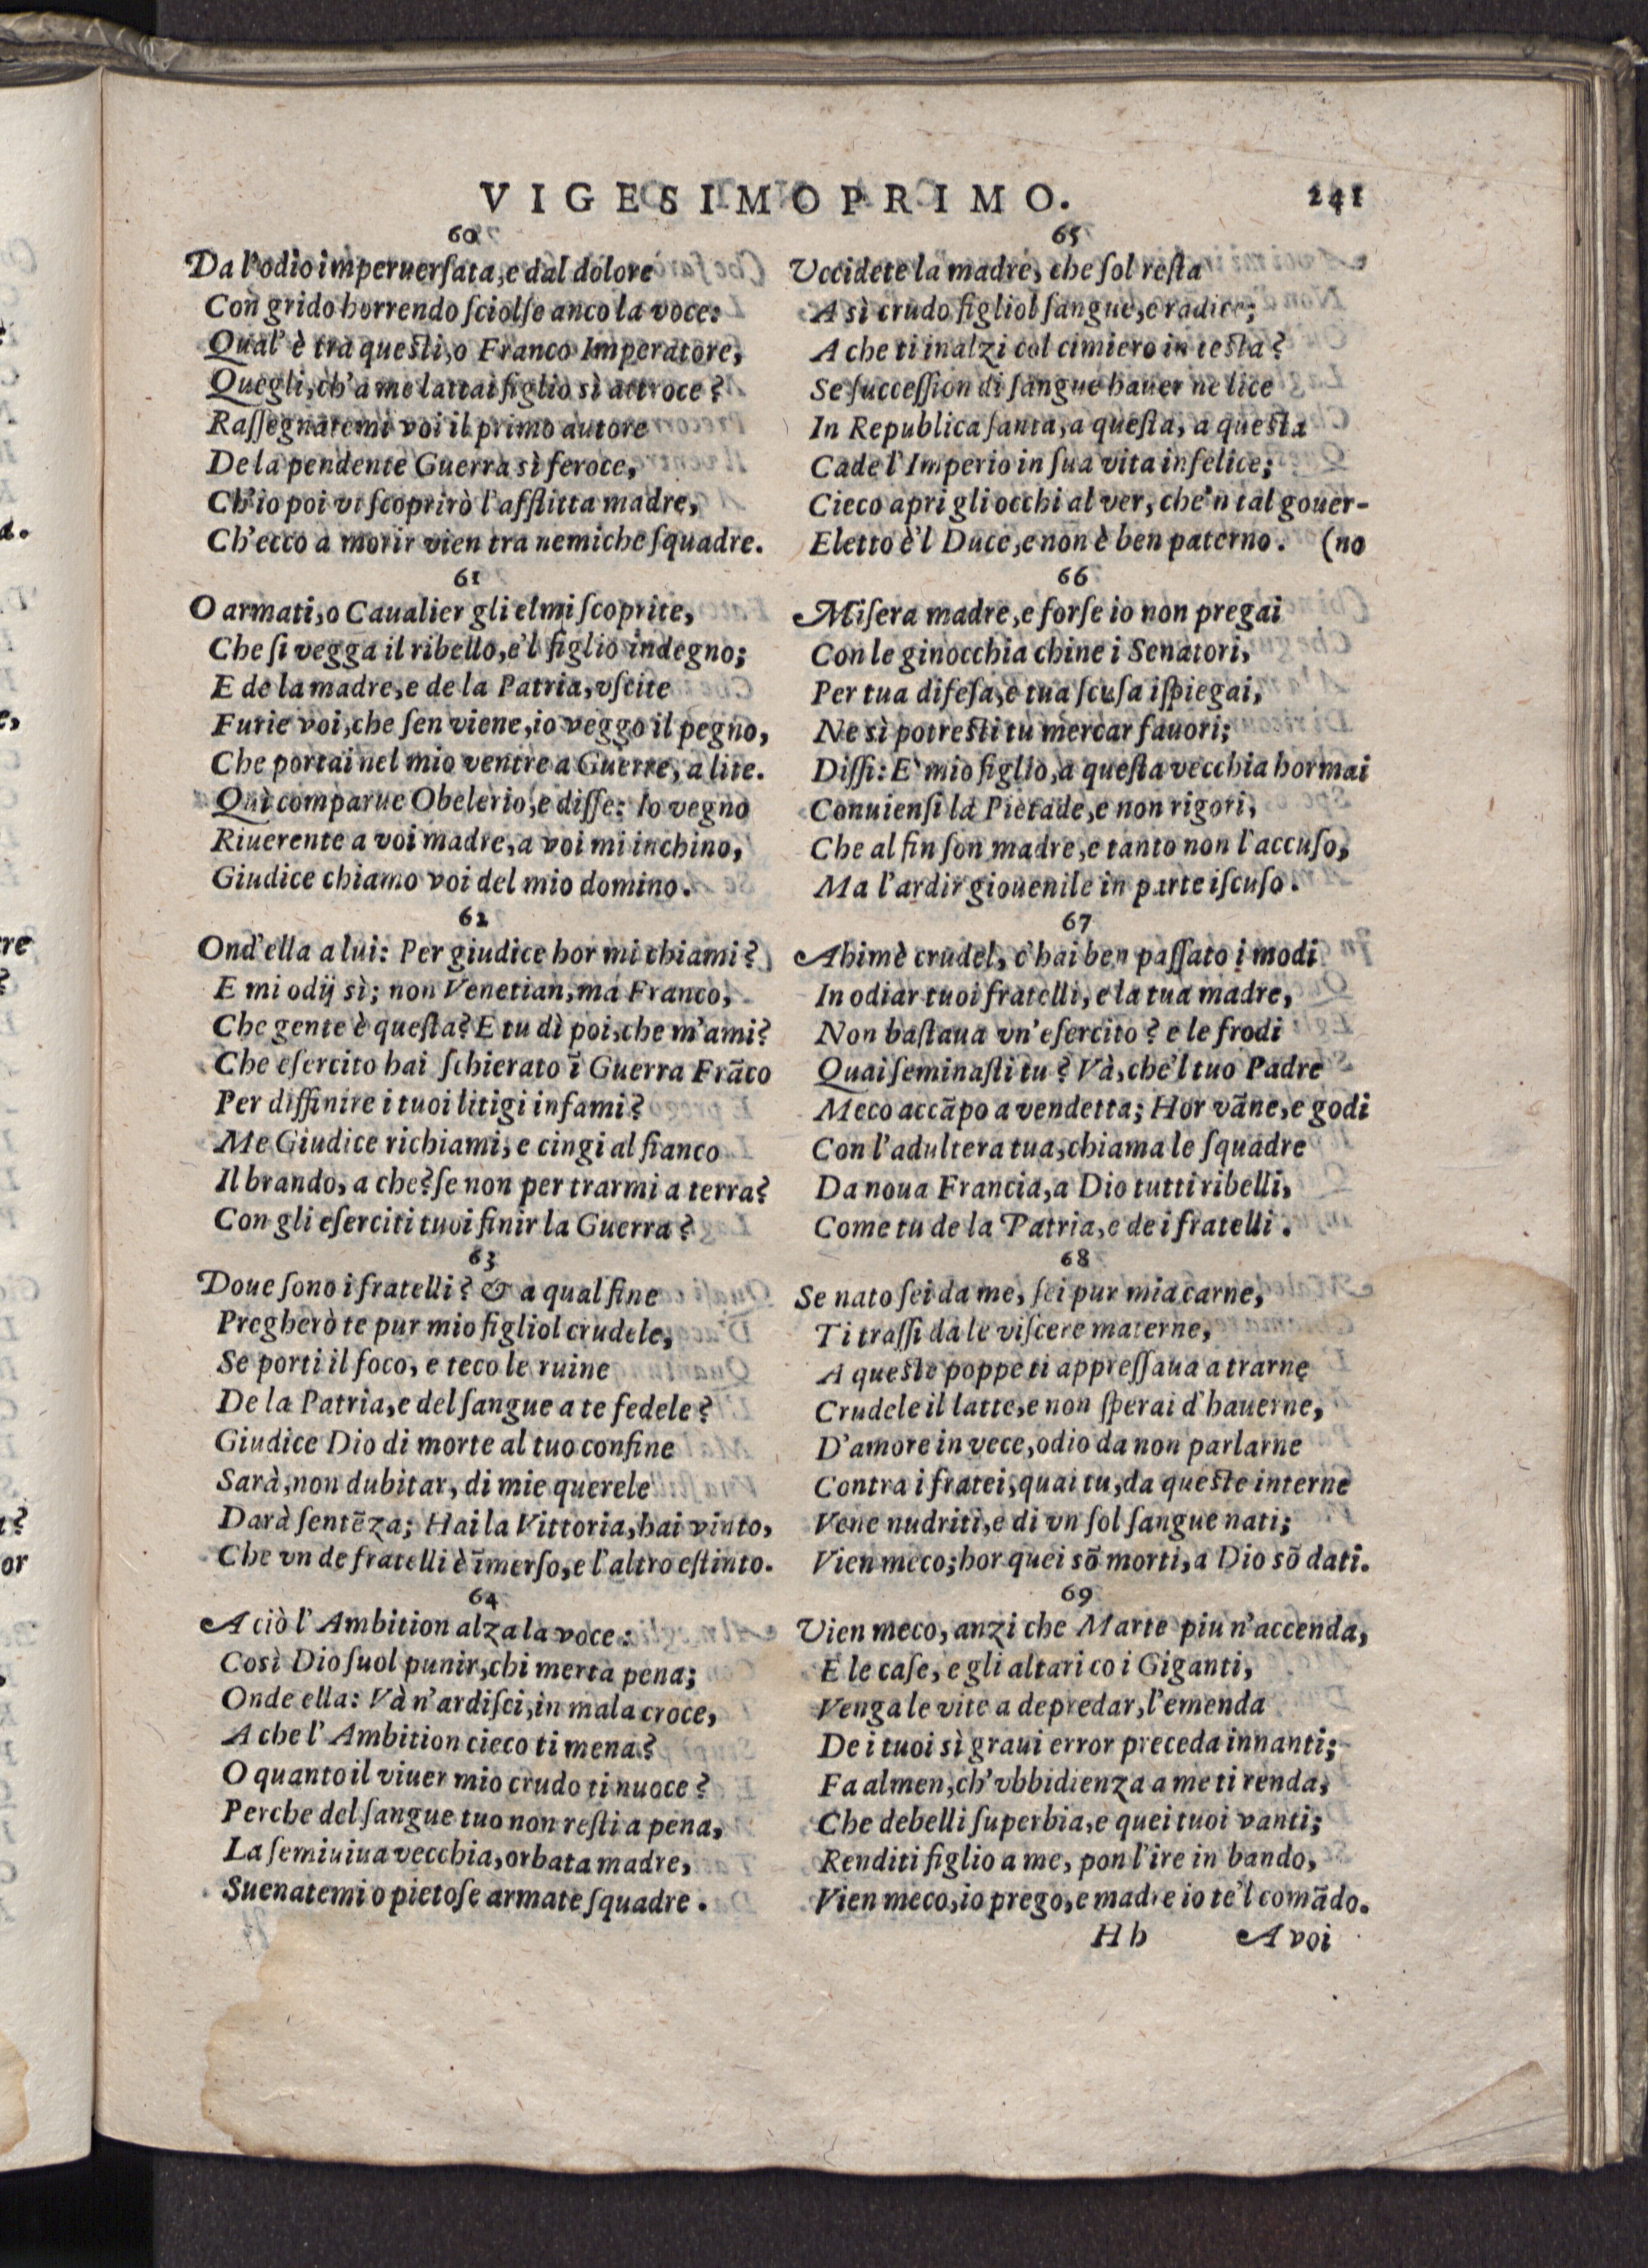 VIGESIMOPRIMO. 241
60
Da l'odio imperuerſata, e dal dolore
Con grido horrendo ſciolſe anco la voce:
Qual' è tra queſti, o Franco Imperatore,
Quegli, ch'a me lattai figlio sì attroce?
Raſſegnatemi voi il primo autore
De la pendente Guerra sì feroce,
Ch'io poi vi ſcoprirò l'afflitta madre,
Ch'ecco a morir vien tra nemiche ſquadre.
61
O armati, o Caualier gli elmi ſcoprite,
Che ſi vegga il ribello, e'l figlio indegno;
E de la madre, e de la Patria, vſcite
Furie voi, che ſen viene, io veggo il pegno,
Che portai nel mio ventre a Guerre, a lite.
Quì comparue Obelerio, e diſſe: Io vegno
Riuerente a voi madre, a voi mi inchino,
Giudice chiamo voi del mio domino.
62
Ond'ella a lui: Per giudice hor mi chiami?
E mi odij sì; non Venetian, ma Franco,
Che gente è queſta? E tu dì poi, che m'ami?
Che eſercito hai ſchierato ĩ Guerra Frãco
Per diffinire i tuoi litigi infami?
Me Giudice richiami, e cingi al fianco
Il brando, a che? ſe non per trarmi a terra?
Con gli eſerciti tuoi finir la Guerra?
63
Doue ſono i fratelli? & a qual fine
Pregherò te pur mio figliol crudele,
Se porti il foco, e teco le ruine
De la Patria, e del ſangue a te fedele?
Giudice Dio di morte al tuo confine
Sarà, non dubitar, di mie querele
Darà ſentẽza; Hai la Vittoria, hai vinto,
Che vn de fratelli è ĩmerſo, e l'altro eſtinto.
64
A ciò l'Ambition alza la voce:
Così Dio ſuol punir, chi merta pena;
Onde ella: Và n'ardiſci, in mala croce,
A che l'Ambition cieco ti mena?
O quanto il viuer mio crudo ti nuoce?
Perche del ſangue tuo non reſti a pena,
La ſemiuiua vecchia, orbata madre,
Suenatemi o pietoſe armate ſquadre.
65
Vccidete la madre, che ſol reſta
A sì crudo figliol ſangue, e radice;
A che ti inalzi col cimiero in teſta?
Se ſucceſſion di ſangue hauer ne lice
In Republica ſanta, a queſta, a queſta
Cade l'Imperio in ſua vita infelice;
Cieco apri gli occhi al ver, che'n tal gouer-
Eletto è'l Duce, e non è ben paterno. (no
66
Miſera madre, e forſe io non pregai
Con le ginocchia chine i Senatori,
Per tua difeſa, e tua ſcuſa iſpiegai,
Ne sì potreſti tu mercar fauori;
Diſſi: E' mio figlio, a queſta vecchia hormai
Conuienſi la Pietade, e non rigori,
Che al fin ſon madre, e tanto non l'accuſo,
Ma l'ardir giouenile in parte iſcuſo.
67
Ahimè crudel, c'hai ben paſſato i modi
In odiar tuoi fratelli, e la tua madre,
Non baſtaua vn'eſercito? e le frodi
Quai ſeminaſti tu? Và, che'l tuo Padre
Meco accãpo a vendetta; Hor vãne, e godi
Con l'adultera tua, chiama le ſquadre
Da noua Francia, a Dio tutti ribelli,
Come tu de la Patria, e de i fratelli.
68
Se nato ſei da me, ſei pur mia carne,
Ti traſſi da le viſcere materne,
A queſte poppe ti appreſſaua a trarne
Crudele il latte, e non ſperai d'hauerne,
D'amore in vece, odio da non parlarne
Contra i fratei, quai tu, da queſte interne
Vene nudriti, e di vn ſol ſangue nati;
Vien meco; hor quei sõ morti, a Dio sõ dati.
69
Vien meco, anzi che Marte piu n'accenda,
E le caſe, e gli altari co i Giganti,
Venga le vite a depredar, l'emenda
De i tuoi sì graui error preceda innanti;
Fa almen, ch'vbbidienza a me ti renda,
Che debelli ſuperbia, e quei tuoi vanti;
Renditi figlio a me, pon l'ire in bando,
Vien meco, io prego, e madre io te'l comãdo.
Hh A voi